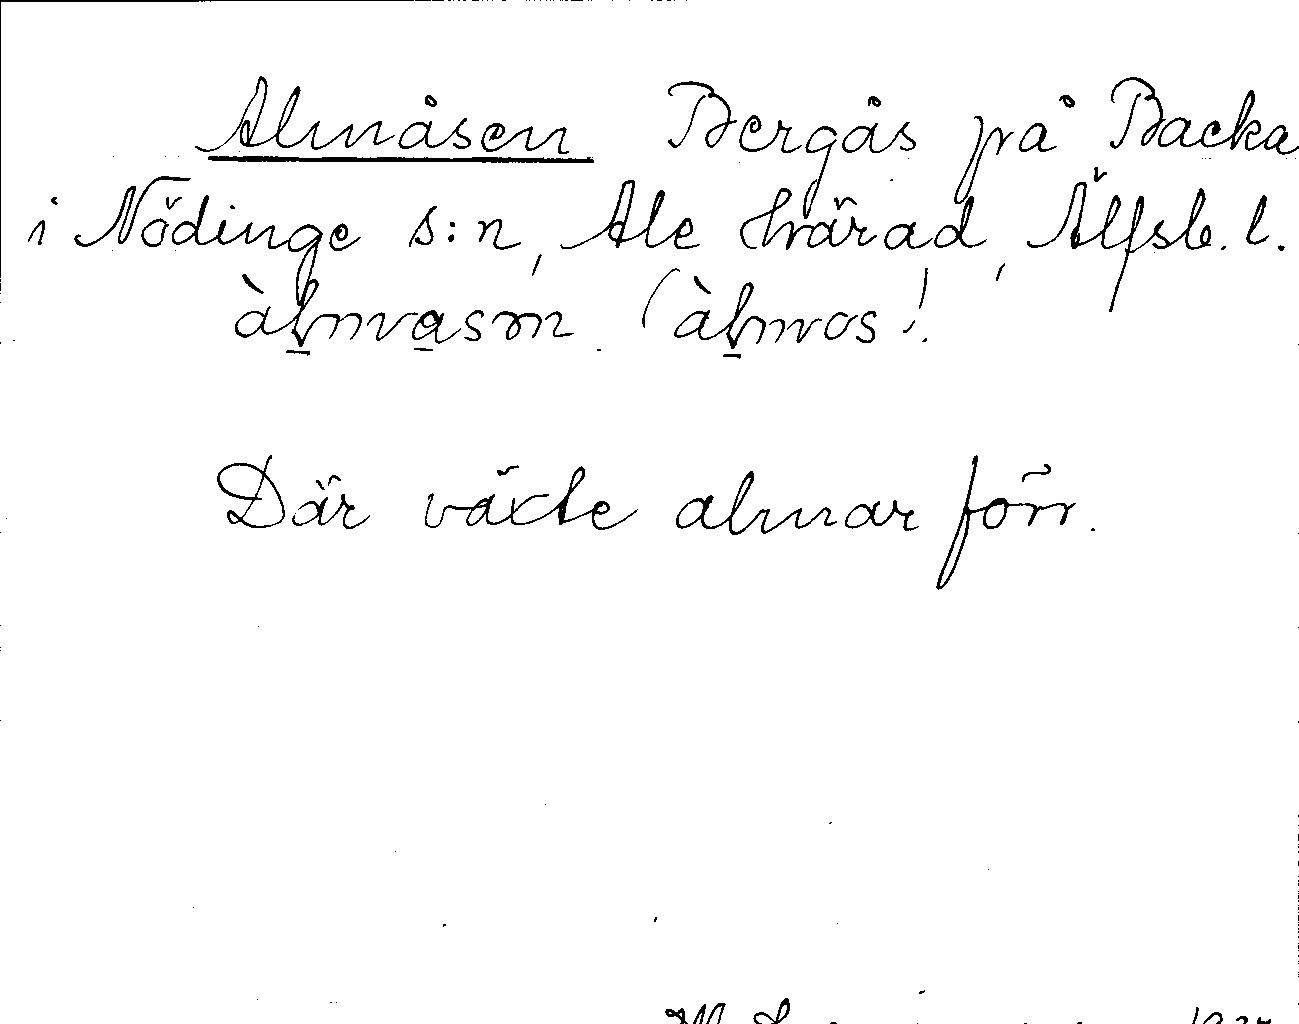 Almåsen Bergås på Backa
i Nödinge s:n, Ale härad, Älfsb. l.
àlmvasm. (àlmvos!
Där växte almar förr.